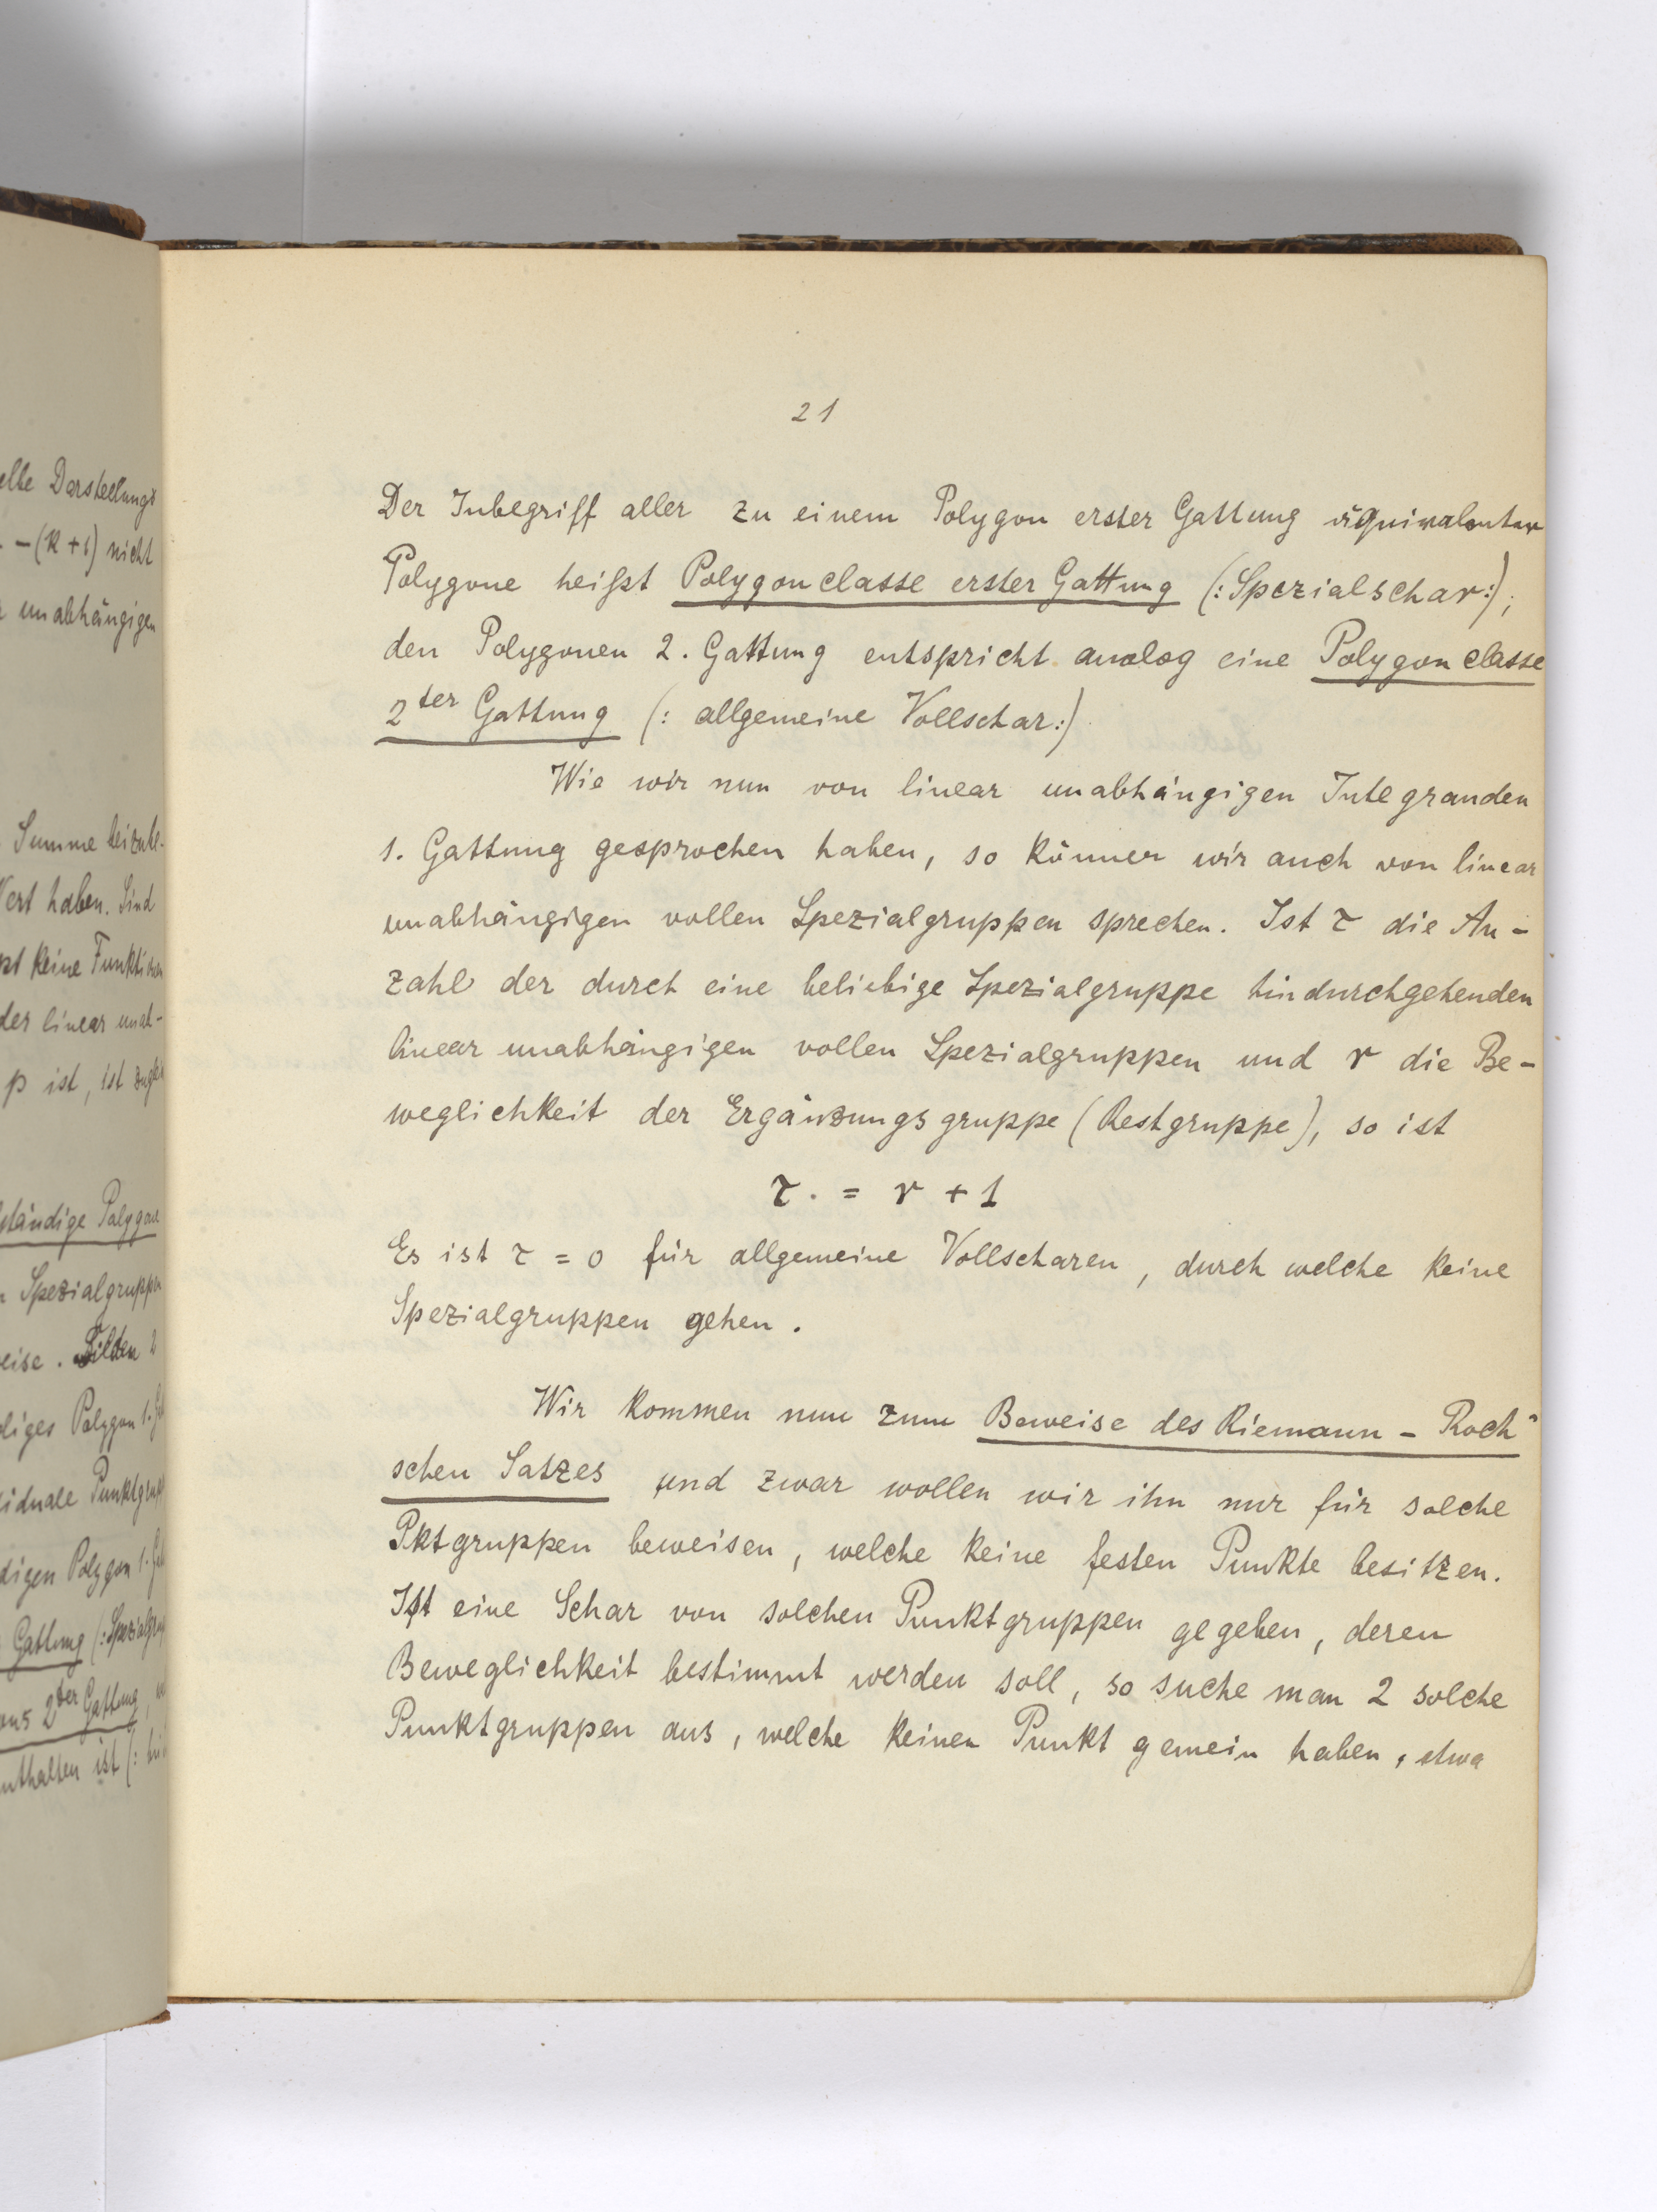 elbe Darstellungs
- -(k+1) nicht
unabhängigen
Summe beizule-
Wert haben. Sind
keine Funktionen
der linear unab-
p ist, ist
ständige Polygone
Spezialgruppen
eise. Bilden 2
diges Polygon 1.
siduale Punktgrup
digen Polygon 1.
Gattung (: Spezialgrup
2ter Gattung
enthalten ist (:
21
Der Inbegriff aller zu einem Polygon erster Gattung äquivalenter
Polygone heißt Polygonclasse erster Gattung (: Spezialschar:);
den Polygonen 2. Gattung entspricht analog eine Polygonclasse
2ter Gattung (: allgemeine Vollschar:)
Wie wir nun von linear unabhängigen Integranden
1. Gattung gesprochen haben, so können wir auch von linear
unabhängigen vollen Spezialgruppen sprechen. Ist τ die An-
zahl der durch eine beliebige Spezialgruppe hindurchgehenden
linear unabhängigen vollen Spezialgruppen und r die Be-
weglichkeit der Ergänzungsgruppe (Restgruppe), so ist
τ = r + 1
Es ist τ = 0 für allgemeine Vollscharen, durch welche keine
Spezialgruppen gehen.
Wir kommen nun zum Beweise des Riemann - Roch'
schen Satzes und zwar wollen wir ihn nur für solche
Pktgruppen beweisen, welche keine festen Punkte besitzen.
Ist eine Schar von solchen Punktgruppen gegeben, deren
Beweglichkeit bestimmt werden soll, so suche man 2 solche
Punktgruppen aus, welche keinen Punkt gemein haben, etwa